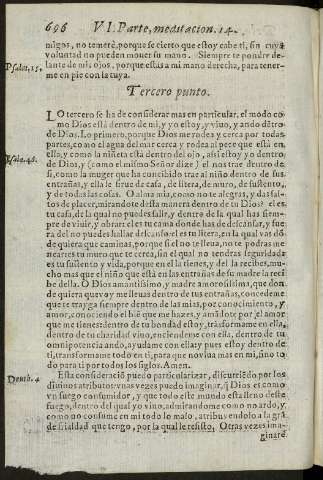 696 VI. Parte, meditacion. 14.
migos, no temeré, porque se cierto que estoy cabe ti, sin cuya
voluntad no pueden mouer su mano. Siempre te pondre de-
Psalm. 15. lante de mis ojos, porque estás a mi mano derecha, para tener-
me en pie con la tuya.
Tercero punto.
LO tercero se ha de considerar mas en particular, el modo co-
mo Dios está dentro de mi, y yo estoy, y viuo, y ando dẽtro
de Dios. Lo primero, porque Dios me rodea y cerca por todas
partes, como el agua del mar cerca y rodea al pece que está en
ella, y como la niñeta está dentro del ojo, assi estoy yo dentro
de Dios, y (como el mismo Señor dize) el nos trae dentro de
Isaiæ. 46. si, como la muger que ha concibido trae al niño dentro de sus
entrañas, y ella le sirue de casa, de litera, de muro, de sustento,
y de todas las cosas. O alma mia, como no te alegras, y das sal-
tos de plazer, mirandote desta manera dentro de tu Dios? el es
tu casa, de la qual no puedes salir, y dentro de la qual has siem-
pre de viuir, y obrar: el es tu cama donde has de descansar, y fue
ra del no puedes hallar descanso: el es tu litera, en la qual vas dõ
de quiera que caminas, porque si el no te lleua, no te podras me
near: el es tu muro que te cerca, sin el qual no tendras seguridad:
es tu sustento y vida, porque en el la tienes, y del la recibes, mu-
cho mas que el niño que está en las entrañas de su madre la reci
be della. O Dios amantissimo, y madre amorosissima, que don
de quiera que voy me lleuas dentro de tus entrañas, concedeme
que te trayga siempre dentro de las mias, por conocimiento, y
amor, conociendo el biẽ que me hazes, y amãdote por el amor
que me tienes: dentro de tu bondad estoy, trãsformame en ella,
dentro de tu charidad viuo, enciendeme con ella, dentro de tu
omnipotencia ando, ayudame con ella: y pues estoy dentro de
ti, transformame todo en ti, para que no viua mas en mi, sino to
do para ti por todos los siglos. Amen.
Deuth. 4. Esta consideraciõ puedo particularizar, discurriẽdo por los
diuinos atributos: vnas vezes puedo imaginar, q̃ Dios es como
vn fuego consumidor, y que todo este mundo esta lleno deste
fuego, dentro del qual yo viuo, admirandome como no ardo, y
como no consume en mi todo lo malo, atribuyendolo a la grã
de frialdad que tengo, por la qual le resisto. Otras vezes ima-
ginaré